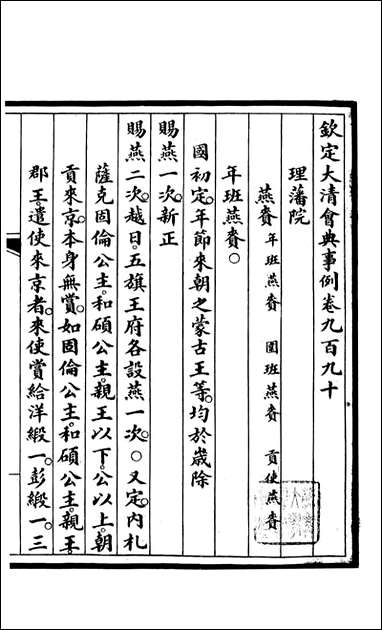 欽定大清會典事例卷九百九十
理藩院
燕賚 年班燕賚 圍班燕賚 貢使燕賚
年班燕賚○
國初定。年節來朝之蒙古王等。均於歲除
賜燕一次。新正
賜燕二次。越日。五旗王府各設燕一次。○又定。內札
薩克固倫公主。和碩公主。親王以下。公以上。朝
貢來京。本身無賞。如固倫公主。和碩公主。親王。
郡王。遣使來京者。來使賞給洋緞一。彭緞一。三